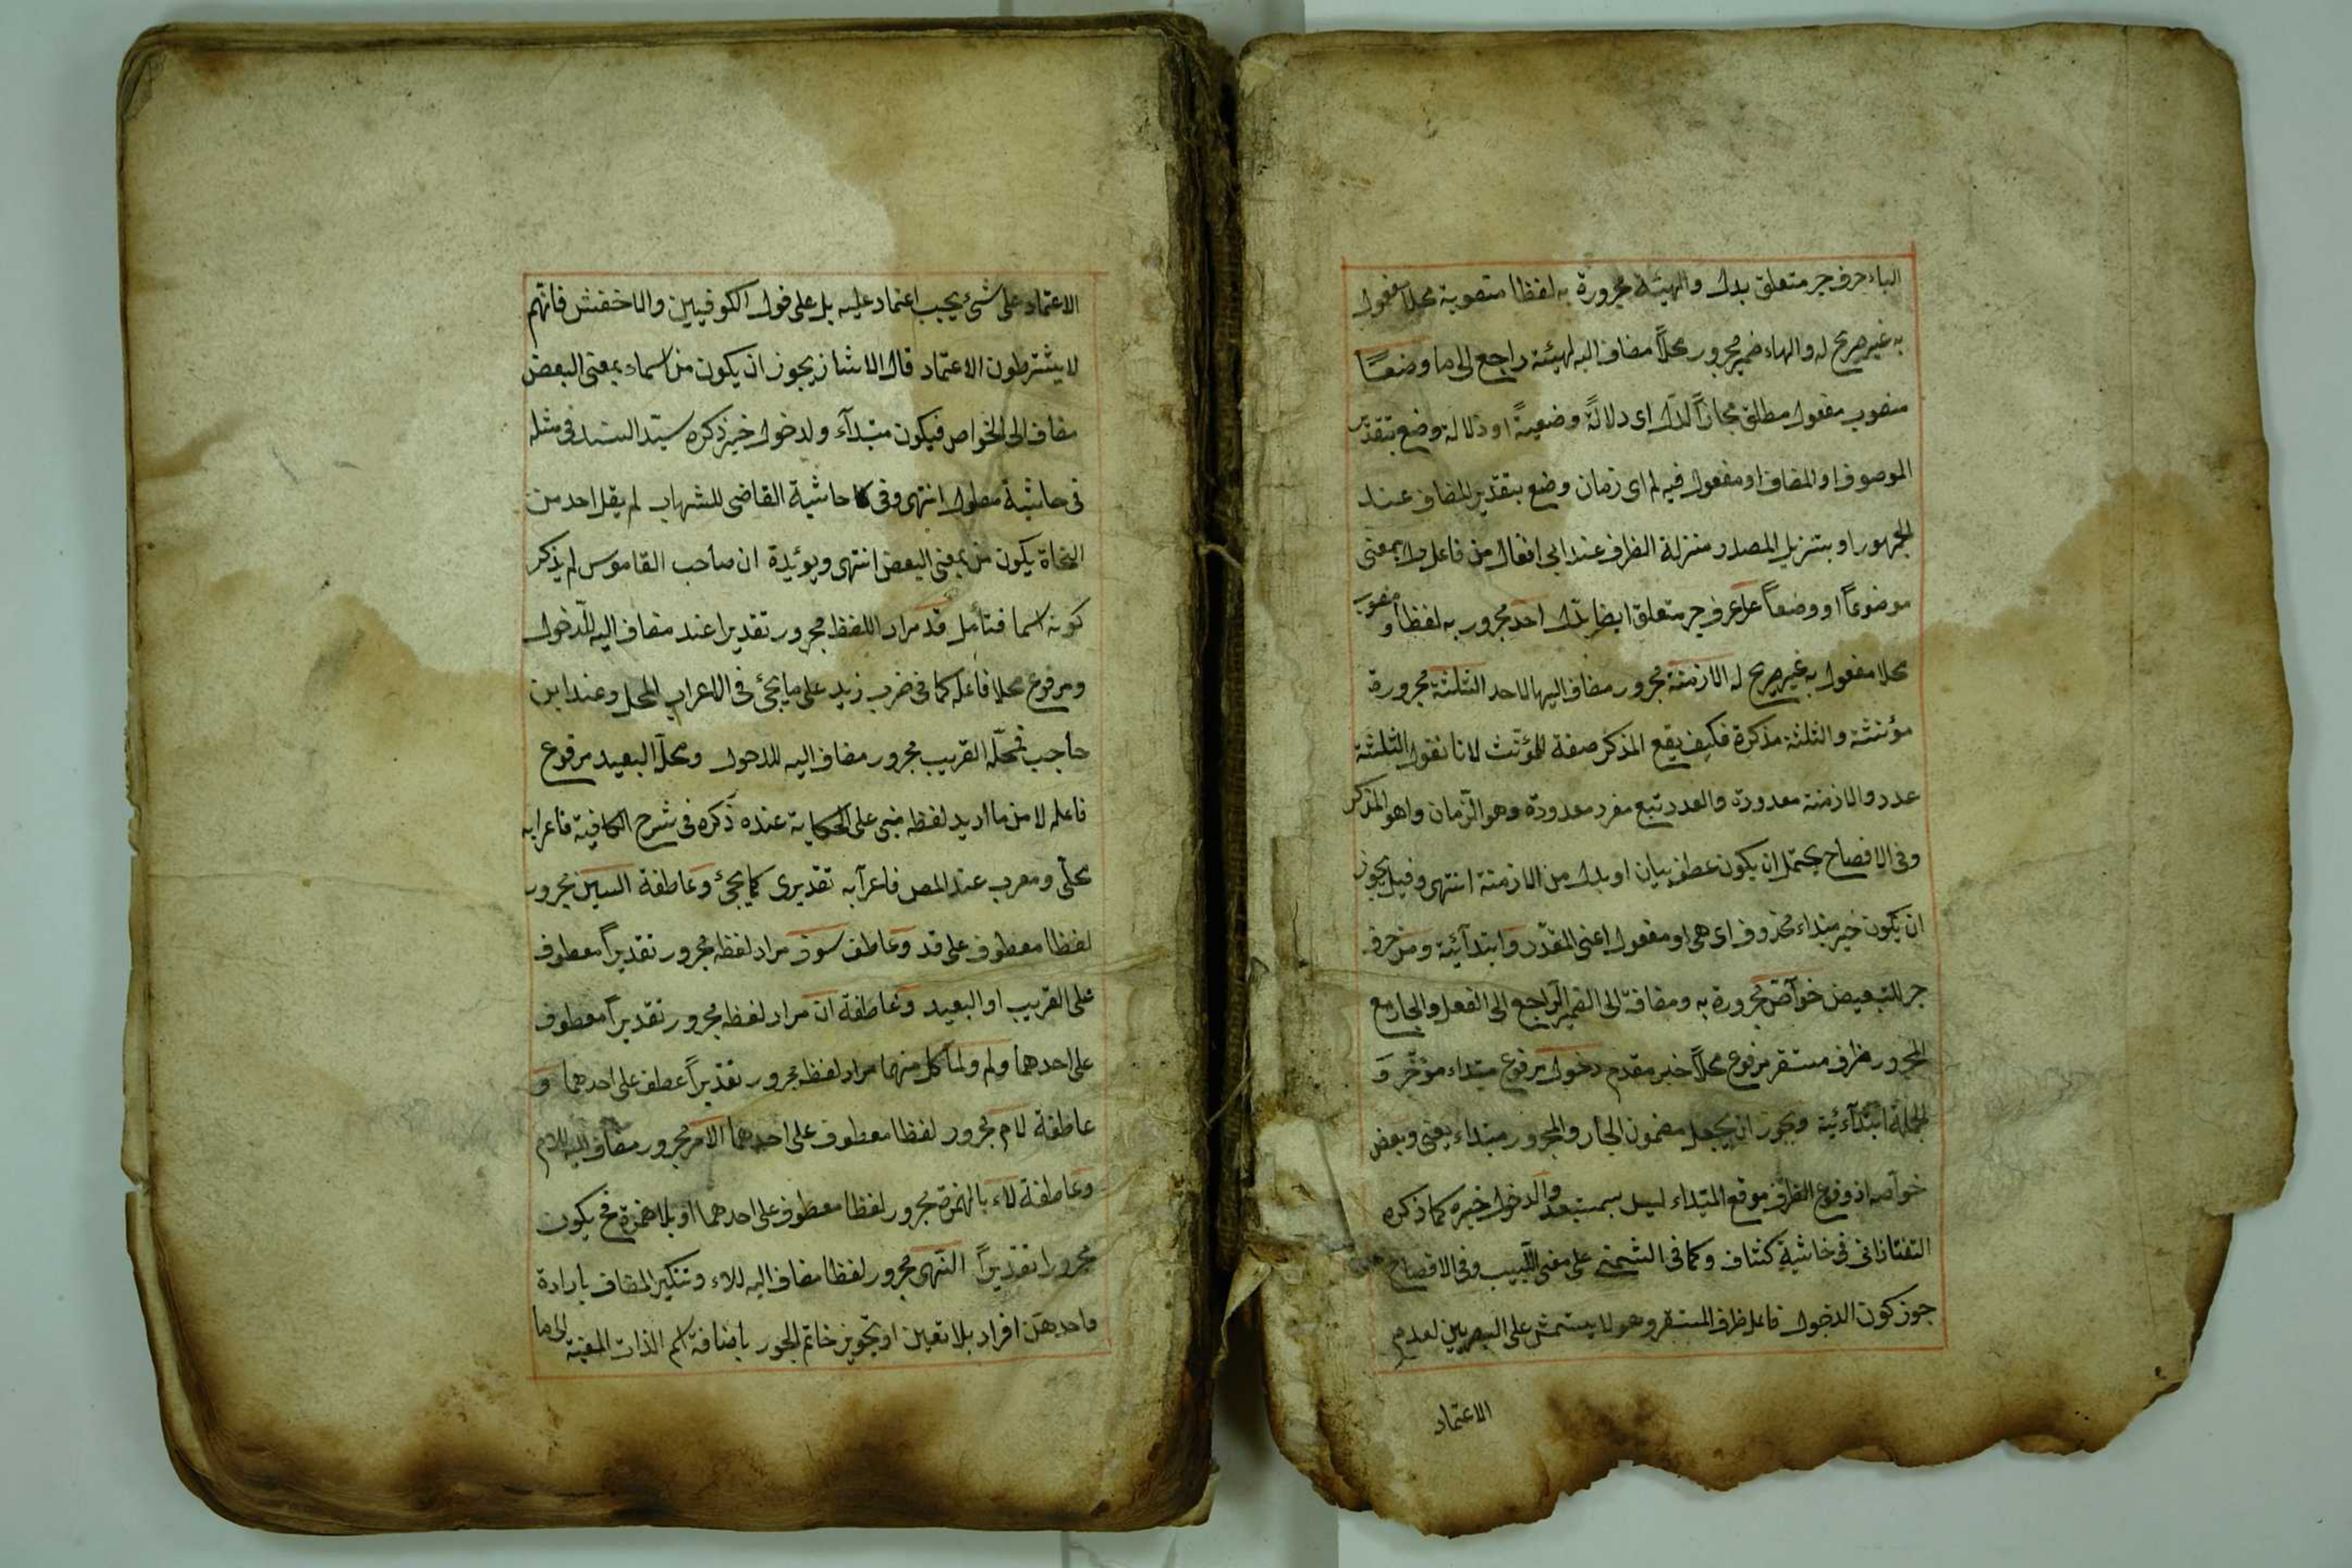 الباء حرف جر متعلق بدل والهيئة مجرورة به لفظا منصوبة محلا مفعول
به غير صريح له والهاء ضمير مجرور محلاً مضاف اليه لهيئة راجع الى ما وضعاً
منصوب مفعول مطلق مجازاً لدل اى دلالةً وضعيةً او دلالة وضع بتقدير
الموصوف او المضاف او مفعول فيه له اى زمان وضع بتقدير المضاف عند
الجمهور او بتنزيل المصدر منزلة الظرف عند ابى من فاعل دل بمعنى
موضوعاً او وضعاً على حرف جر متعلق ايضا بدل احد مجرور به لفظا و منصوب
محلا مفعول به غير صريح له الازمنة مجرور مضاف اليها لاحد الثلثة مجرورة
مؤنثة والثلثة مذكرة فكيف يقع المذكر صفة للمؤنث لانا نقول الثلثة
عدد والازمنة معدودة والعدد تبع مفرد معدودة وهو الزمان واهو المذكر
وفى الافصاح يحتمل ان يكون عطف بيان او بدل من الازمنة انتهى وقيل يجوز
ان يكون خبر مبتداء محذوف اى هى او مفعول اعنى المقدّر و ابتدآئية ومن حرف
جر للتبعيض خوآصّ مجرورة به ومضافة الى الضمير الراجع الى الفعل والجار مع
المجرور ظرف مستقر مرفوع محلاً خبر مقدم دخول مرفوع مبتداء مؤخّر وَ
الجملة ابتدآئية ويجوز ان يجعل مضمون الجار والمجرور مبتداء يعنى وبعض
خوآصه اذ وقوع الظرف موقع المبتداء ليس بمستبعد والدخول خبره كما ذكره
التفتازانى فى حاشية كشاف وكما فى الشمنى على مغنى اللبيب وفى الافصاح
جوز كون الدخول فاعل ظرف المستقر وهو لا يستمشى على البصريين لعدم
الاعتماد
الاعتماد على شئ يجب اعتماد عليه بل على قول الكوفيين والاخفش فانهم
لا يشترطون الاعتماد قال الاشاز يجوز ان يكون من اسماء بمعنى البعض
مضاف الى الخواص فيكون مبتدآء ولدخول خبر ذكره سيّد السند فى مثله
فى حاشية مطول انتهى وفى حاشية القاضى للشهاب لم يقل احد من
النحاة يكون من بمعنى البعض انتهى ويؤيدة ان صاحب القاموس لم يذكر
كونه اسما فتأمل قد مراد اللفظ مجرور تقديرا عند مضاف اليه للدّخول
ومرفوع محلا فاعله كما فى ضرب زيد على ما يجئ فى الاعراب المحل وعند ابن
حاجب فمحلّه القريب مجرور مضاف اليه للدخول ومحلّه البعيد مرفوع
فاعله لا من ما اريد لفظه مبنى على الحكاية عنده ذكره فى شرح الكافية فاعرابه
محلى ومعرب عند المص فاعرآبه تقديرى كما يجئ وَ عاطفة السين مجرور
لفظا معطوف على قد وَ عاطف سوف مراد لفظه مجرور تقديراً معطوف
على القريب او البعيد وَ عاطفة ان مراد لفظه مجرور تقديراً معطوف
على احدهما ولم ولمّا كل منهما مراد لفظه مجرور تقديراً عطف على احدهما وَ
عاطفة لام مجرور لفظا معطوف على احدهما الامر مجرور مضاف اليه للام
وَ عاطفة لاء بالهمزة مجرور لفظا معطوف على احدهما او بلا همزة فح يكون
مجرورا تقديراً النّهى مجرور لفظا مضاف اليه للاء وتنكير المضاف بارادة
واحد من افراد بلا تعيين او تجويز خاتم الجور باضافة اسم الذات المعينة الى ما